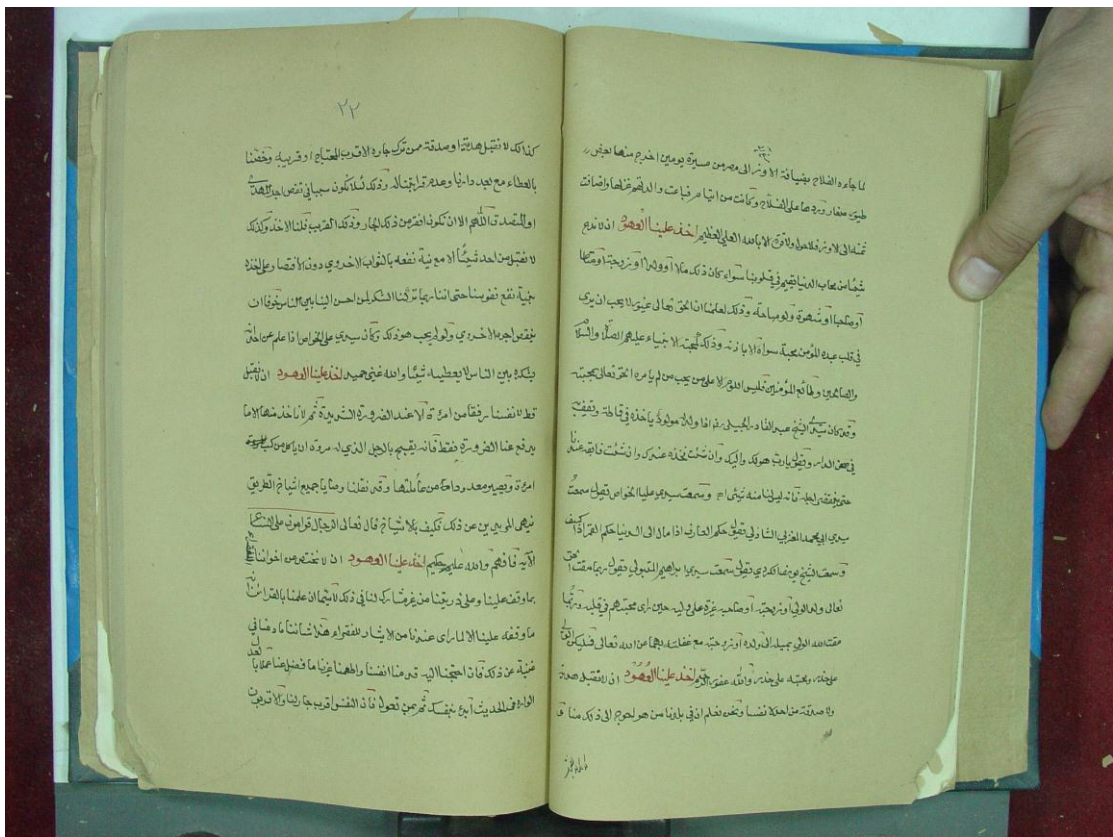 لما جاءه الفلاح بضيافة الاوز الى مصر من مسيرة يومين اخرج منها بعض
طيور صغار وردها على الفلاح وكانت من ايتام فباعت والدتهم غزلها واضافت
ثمنه الى الاوز فلا حول ولا قوة الا بالله العلي العظيم اخذ علينا العهود ان لا ندع
شيئا من محاب الدنيا يقيم في قلوبنا سواء كان ذلك مالا او ولدا او زوجة او متاعا
او صاحبا او شهوة ولو مباحة وذلك لعلمنا ان الحق تعالى غيور لا يحب ان يرى
في قلب عبده المؤمن محبة سواه الا باذنه وذلك كمحبته الانبياء عليهم الصلاة والسلام
والصالحين وطائع المؤمنين فليس اللوم الا على من يحب من لم يامره الحق تعالى بمحبته
وقد كان سيدي الشيخ عبد القادر الجيلي رضي اذا ولد له مولود ياخذه في قماطه ويقف به
في صحن الدار ويقول يا رب هو لك واليك وان شئت فخذه عندك وان شئت فابقه عندنا
حتى ينقضي اجله فانه ليس لنا منه شيء اه وسمعت سيدي عليا الخواص يقول سمعت
سيدي ابي محمد المغربي الشاذلي يقول حكم العارف اذا مال الى الدنيا حكم القمر اذا كسف
وسمعت الشيخ يوسف الكردي يقول سمعت سيدي ابراهيم المتبولي يقول ربما مقت الحق
تعالى ولد الولي او زوجته او صاحبه غيرة على وليه حين راى محبتهم في قلبه وربما
مقت الله الولي بميله الى ولده او زوجته مع غفلته بهما عن الله تعالى فليكن الولي
على حذر ومحبته على حذر والله غفور رحيم اخذ علينا العهود ان لا نقبل هدية
ولا صدقة من احد لانفسنا ونحن نعلم ان في بلدنا من هو احوج الى ذلك منا
٢٢
كذلك لا نقبل هدية او صدقة ممن ترك جاره الاقرب المحتاج او قريبه وخصنا
بالعطاء مع بعد دارنا وعدم قرابتنا له وذلك لئلا نكون سببا في نقص اجر المهدي
او المتصدق اللهم الا ان نكون افقر من ذلك الجار وذلك القريب فلنا الاخذ وكذلك
لا نقبل من احد شيئا الا مع نية نفعه بالثواب الاخروي دون الاقتصار على اخذه
بنية نفع نفوسنا حتى اننا ربما تركنا الشكر لمن احسن الينا بين الناس خوفا ان
ينقص اجره الاخروي ولو لم يحب هو ذلك وكان سيدي علي الخواص اذا علم من احد انه
يشكره بين الناس لا يعطيه شيئا والله غني حميد اخذ علينا العهود ان لا نقبل
قط لانفسنا رفقا من امرأة الا عند الضرورة الشديدة ثم لا ناخذ منها الا ما
يدفع عنا الضرورة فقط فانه يقبح بالرجل الذي له مروءة ان ياكل من كسب
امرأة ويصير معدودا من عائلتها وقد نقلنا وصايا جميع اشياخ الطريق
نهي المريدين عن ذلك فكيف بالاشياخ قال تعالى الرجال قوامون على النساء
الآية فافهم والله عليم حكيم اخذ علينا العهود ان لا نختص عن اخواننا الفقراء
بما وقف علينا وعلى ذريتنا من غير مشارك لنا في ذلك لا سيما ان علمنا بالقرائن انه
ما وقفه علينا الا لما راى عندنا من الايثار للفقراء هذا شاننا ما دمنا في
غنية عن ذلك فان احتجنا اليه قدمنا انفسنا واطعمنا غيرنا ما فضل عنا عملا بما
الوارد في الحديث ابدأ بنفسك ثم بمن تعول فان النفس اقرب جار لنا والاقربون